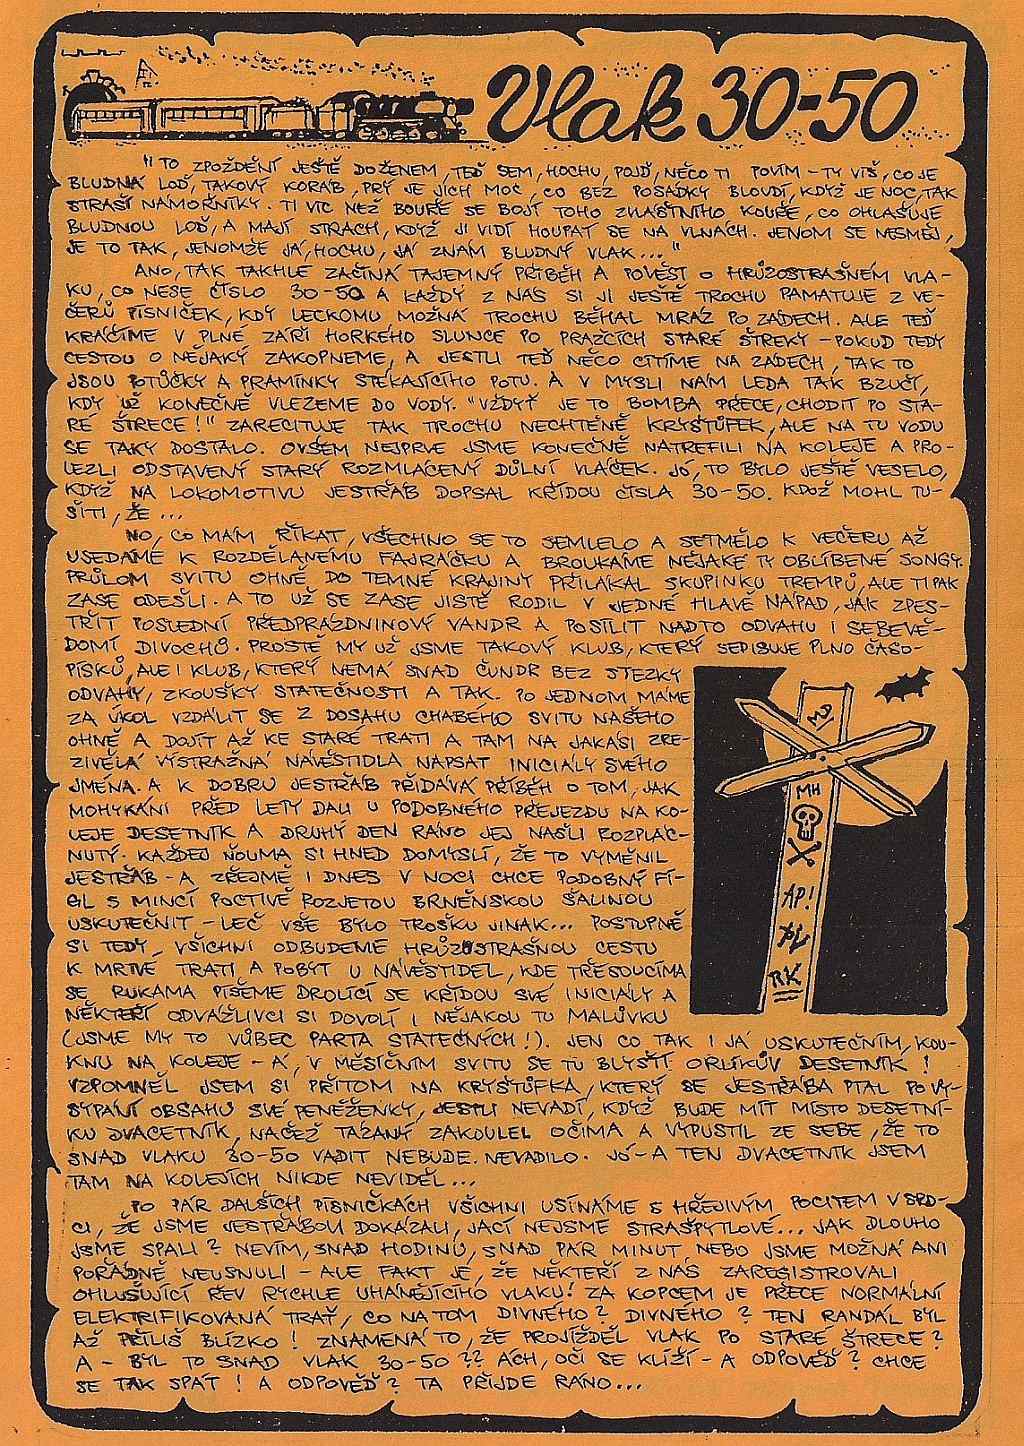 Vlak 30-50
"TO ZPOŽDĚNÍ JEŠTĚ DOŽENEM, TEĎ SEM, HOCHU, POJĎ, NĚCO TI POVÍM - TY VÍŠ, CO JE
BLUDNÁ LOĎ, TAKOVÝ KORÁB, PRÝ JE JICH MOC, CO BEZ POSÁDKY BLOUDÍ, KDYŽ JE NOC, TAK
STRAŠÍ NÁMOŘNÍKY. TI VÍC NEŽ BOUŘE SE BOJÍ TOHO ZVLÁŠTNÍHO KOUŘE, CO OHLAŠUJE
BLUDNOU LOĎ, A MAJÍ STRACH, KDYŽ JI VIDÍ HOUPAT SE NA VLNÁCH. JENOM SE NESMĚJ,
JE TO TAK, JENOMŽE JÁ, HOCHU, JÁ ZNÁM BLUDNÝ VLAK... "
ANO, TAK TAKHLE ZAČÍNÁ TAJEMNÝ PŘÍBĚH A POVĚST O HRŮZOSTRAŠNÉM VLA-
KU, CO NESE ČÍSLO 30-50 A KAŽDÝ Z NÁS SI JI JEŠTĚ TROCHU PAMATUJE Z VE-
ČERŮ PÍSNIČEK, KDY LECKOMU MOŽNÁ TROCHU BĚHAL MRÁZ PO ZÁDECH. ALE TEĎ
KRÁČÍME V PLNÉ ZÁŘI HORKÉHO SLUNCE PO PRAŽCÍCH STARÉ ŠTREKY - POKUD TEDY
CESTOU O NĚJAKÝ ZAKOPNEME, A JESTLI TEĎ NĚCO CÍTÍME NA ZÁDECH, TAK TO
JSOU POTŮČKY A PRAMÍNKY STÉKAJÍCÍHO POTU. A V MYSLI NÁM LEDA TAK BZUČÍ,
KDY UŽ KONEČNĚ VLEZEME DO VODY. "VŽDYŤ JE TO BOMBA PŘECE, CHODIT PO STA-
RÉ ŠTRECE!" ZARECITUJE TAK TROCHU NECHTĚNĚ KRYŠTŮFEK, ALE NA TU VODU
SE TAKY DOSTALO. OVŠEM NEJPRVE JSME KONEČNĚ NATREFILI NA KOLEJE A PRO-
LEZLI ODSTAVENÝ STARÝ ROZMLÁCENÝ DŮLNÍ VLÁČEK. JÓ, TO BYLO JEŠTĚ VESELO,
KDYŽ NA LOKOMOTIVU JESTŘÁB DOPSAL KŘÍDOU ČÍSLA 30-50. KDOŽ MOHL TU-
ŠITI, ŽE ...
NO, CO MÁM ŘÍKAT, VŠECHNO SE TO SEMLELO A SETMĚLO K VEČERU AŽ
USEDÁME K ROZDĚLANÉMU FAJRÁČKU A BROUKÁME NĚJAKÉ TY OBLÍBENÉ SONGY.
PRŮLOM SVITU OHNĚ DO TEMNÉ KRAJINY PŘILÁKAL SKUPINKU TREMPŮ, ALE TI PAK
ZASE ODEŠLI. A TO UŽ SE ZASE JISTĚ RODIL V JEDNÉ HLAVĚ NÁPAD, JAK ZPES-
TŘIT POSLEDNÍ PŘEDPRÁZDNINOVÝ VANDR A POSÍLIT NADTO ODVAHU I SEBEVĚ-
DOMÍ DIVOCHŮ. PROSTĚ MY UŽ JSME TAKOVÝ KLUB, KTERÝ SEPISUJE PLNO ČASO-
PISKŮ, ALE I KLUB, KTERÝ NEMÁ SNAD ČUNDR BEZ STEZKY
ODVAHY, ZKOUŠKY STATEČNOSTI A TAK. PO JEDNOM MÁME
ZA ÚKOL VZDÁLIT SE Z DOSAHU CHABÉHO SVITU NAŠEHO
OHNĚ A DOJÍT AŽ KE STARÉ TRATI A TAM NA JAKÁSI ZRE-
ZIVĚLÁ VÝSTRAŽNÁ NÁVĚSTIDLA NAPSAT INICIÁLY SVÉHO
JMÉNA. A K DOBRU JESTŘÁB PŘIDÁVÁ PŘÍBĚH O TOM, JAK
MOHYKÁNI PŘED LETY DALI U PODOBNÉHO PŘEJEZDU NA KO-
LEJE DESETNÍK A DRUHÝ DEN RÁNO JEJ NAŠLI ROZPLÁC-
NUTÝ. KAŽDEJ ŇOUMA SI HNED DOMYSLÍ, ŽE TO VYMĚNIL
JESTŘÁB - A ZŘEJMĚ I DNES V NOCI CHCE PODOBNÝ FÍ-
GL S MINCÍ POCTIVĚ ROZJETOU BRNĚNSKOU ŠALINOU
USKUTEČNIT - LEČ VŠE BYLO TROŠKU JINAK... POSTUPNĚ
SI TEDY VŠICHNI ODBUDEME HRŮZOSTRAŠNOU CESTU
K MRTVÉ TRATI A POBYT U NÁVĚSTIDEL, KDE TŘESOUCÍMA
SE RUKAMA PÍŠEME DROLÍCÍ SE KŘÍDOU SVÉ INICIÁLY A
NĚKTEŘÍ ODVÁŽLIVCI SI DOVOLÍ I NĚJAKOU TU MALŮVKU
(JSME MY TO VŮBEC PARTA STATEČNÝCH!). JEN CO TAK I JÁ USKUTEČNÍM, KOU-
KNU NA KOLEJE - A, V MĚSÍČNÍM SVITU SE TU BLYŠTÍ ORLÍKŮV DESETNÍK!
VZPOMNĚL JSEM SI PŘITOM NA KRYŠTŮFKA, KTERÝ SE JESTŘÁBA PTAL PO VY-
SYPÁNÍ OBSAHU SVÉ PENĚŽENKY, JESTLI NEVADÍ, KDYŽ BUDE MÍT MÍSTO DESETNÍ-
KU DVACETNÍK, NAČEŽ TÁZANÝ ZAKOULEL OČIMA A VYPUSTIL ZE SEBE, ŽE TO
SNAD VLAKU 30-50 VADIT NEBUDE. NEVADILO. JÓ - A TEN DVACETNÍK JSEM
TAM NA KOLEJÍCH NIKDE NEVIDĚL ...
PO PÁR DALŠÍCH PÍSNIČKÁCH VŠICHNI USÍNÁME S HŘEJIVÝM POCITEM V SRD-
CI, ŽE JSME JESTŘÁBOVI DOKÁZALI, JACÍ NEJSME STRAŠPYTLOVÉ... JAK DLOUHO
JSME SPALI? NEVÍM, SNAD HODINU, SNAD PÁR MINUT, NEBO JSME MOŽNÁ ANI
POŘÁDNĚ NEUSNULI - ALE FAKT JE, ŽE NĚKTEŘÍ Z NÁS ZAREGISTROVALI
OHLUŠUJÍCÍ ŘEV RYCHLE UHÁNĚJÍCÍHO VLAKU! ZA KOPCEM JE PŘECE NORMÁLNÍ
ELEKTRIFIKOVANÁ TRAŤ, CO NA TOM DIVNÉHO? DIVNÉHO? TEN RANDÁL BYL
AŽ PŘÍLIŠ BLÍZKO! ZNAMENÁ TO, ŽE PROJÍŽDĚL VLAK PO STARÉ ŠTRECE?
A - BYL TO SNAD VLAK 30-50 ?? ÁCH, OČI SE KLÍŽÍ - A ODPOVĚĎ? CHCE
SE TAK SPÁT! A ODPOVĚĎ? TA PŘIJDE RÁNO...
MH
AP!
RK